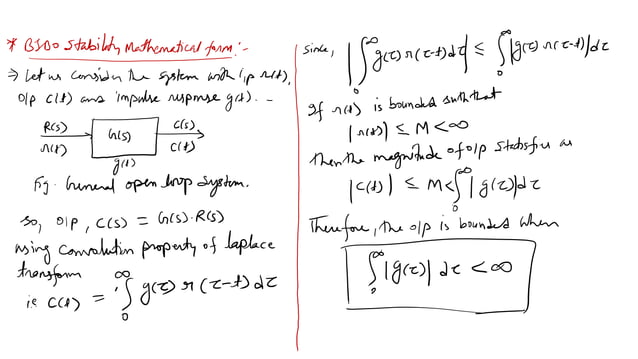 * BIBO Stability Mathematical form:-
⇒ Let us consider the system with i/p r(t),
o/p c(t) and impulse response g(t). -
R(s) G(s) C(s)
r(t) c(t)
g(t)
Fig. General open loop system.
so, o/p, C(s) = G(s)·R(s)
using Convolution property of laplace
transform
i.e c(t) = ∫₀^∞ g(τ) r(τ-t) dτ
Since, |∫₀^∞ g(τ) r(τ-t) dτ| ≤ ∫₀^∞ |g(τ) r(τ-t)| dτ
If r(t) is bounded such that
|r(t)| ≤ M < ∞
then the magnitude of o/p satisfies as
|c(t)| ≤ M < ∫₀^∞ |g(τ)| dτ
Therefore, the o/p is bounded when
∫₀^∞ |g(τ)| dτ < ∞